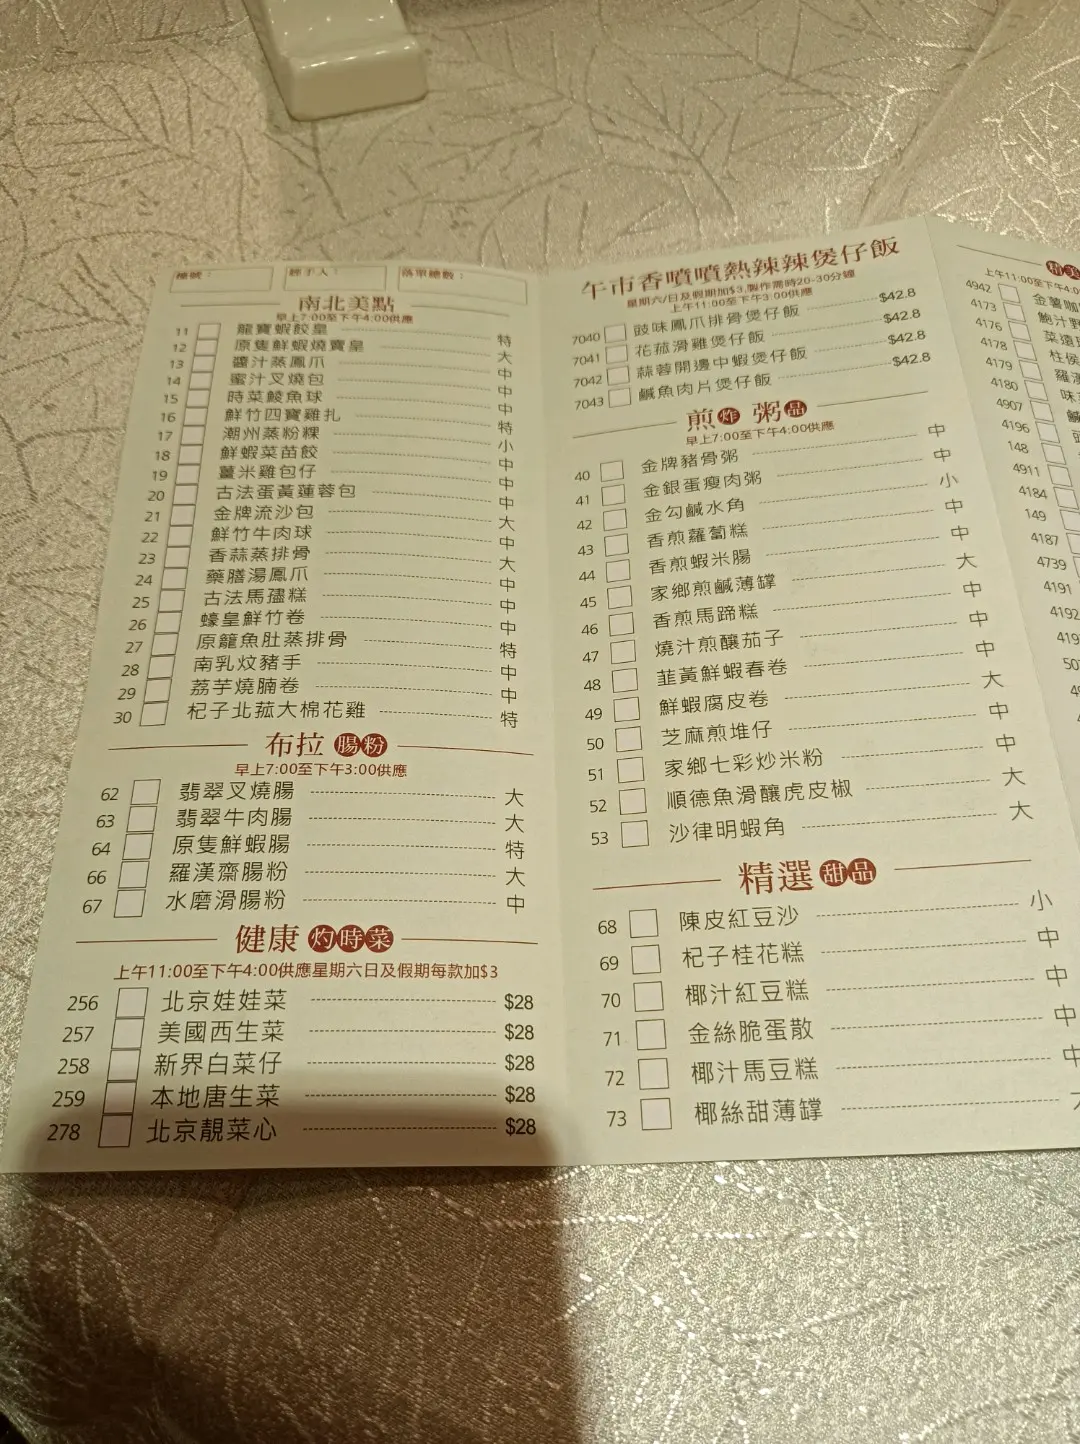 檯號：
經手人：
落單總數：
南北美點
早上7:00至下午4:00供應
11 龍寶蝦餃皇 特
12 原隻鮮蝦燒賣皇 大
13 醬汁蒸鳳爪 中
14 蜜汁叉燒包 中
15 時菜鯪魚球 中
16 鮮竹四寶雞扎 特
17 潮州蒸粉粿 小
18 鮮蝦菜苗餃 中
19 薑米雞包仔 中
20 古法蛋黃蓮蓉包 中
21 金牌流沙包 大
22 鮮竹牛肉球 中
23 香蒜蒸排骨 大
24 藥膳湯鳳爪 中
25 古法馬孻糕 中
26 蠔皇鮮竹卷 中
27 原籠魚肚蒸排骨 特
28 南乳炆豬手 中
29 荔芋燒腩卷 中
30 杞子北菰大棉花雞 特
布拉腸粉
早上7:00至下午3:00供應
62 翡翠叉燒腸 大
63 翡翠牛肉腸 大
64 原隻鮮蝦腸 特
66 羅漢齋腸粉 大
67 水磨滑腸粉 中
健康灼時菜
上午11:00至下午4:00供應星期六日及假期每款加$3
256 北京娃娃菜 $28
257 美國西生菜 $28
258 新界白菜仔 $28
259 本地唐生菜 $28
278 北京靚菜心 $28
午市香噴噴熱辣辣煲仔飯
星期六/日及假期加$3,製作需時20-30分鐘
上午11:00至下午3:00供應
7040 豉味鳳爪排骨煲仔飯 $42.8
7041 花菰滑雞煲仔飯 $42.8
7042 蒜蓉開邊中蝦煲仔飯 $42.8
7043 鹹魚肉片煲仔飯
煎炸粥品
早上7:00至下午4:00供應
40 金牌豬骨粥 中
41 金銀蛋瘦肉粥 中
42 金勾鹹水角 小
43 香煎蘿蔔糕 中
44 香煎蝦米腸 中
45 家鄉煎鹹薄罉 大
46 香煎馬蹄糕 中
47 燒汁煎釀茄子 中
48 韮黃鮮蝦春卷 中
49 鮮蝦腐皮卷 大
50 芝麻煎堆仔 中
51 家鄉七彩炒米粉 中
52 順德魚滑釀虎皮椒 大
53 沙律明蝦角 大
精選甜品
68 陳皮紅豆沙 小
69 杞子桂花糕 中
70 椰汁紅豆糕 中
71 金絲脆蛋散 中
72 椰汁馬豆糕 中
73 椰絲甜薄罉
精美
上午11:00至下午4:0
4942 金薯咖
4173 鮑汁野
4176 菜遠
4178 柱侯
4179 羅漢
4180 味
4907 鹹
4196
148
4911
4184
149
4187
4739
4191
4192
419
50
49